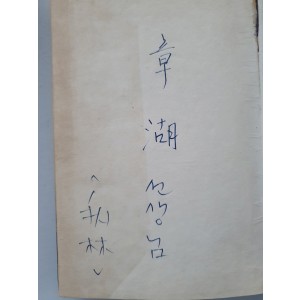 章湖 선생님
〈秋林〉